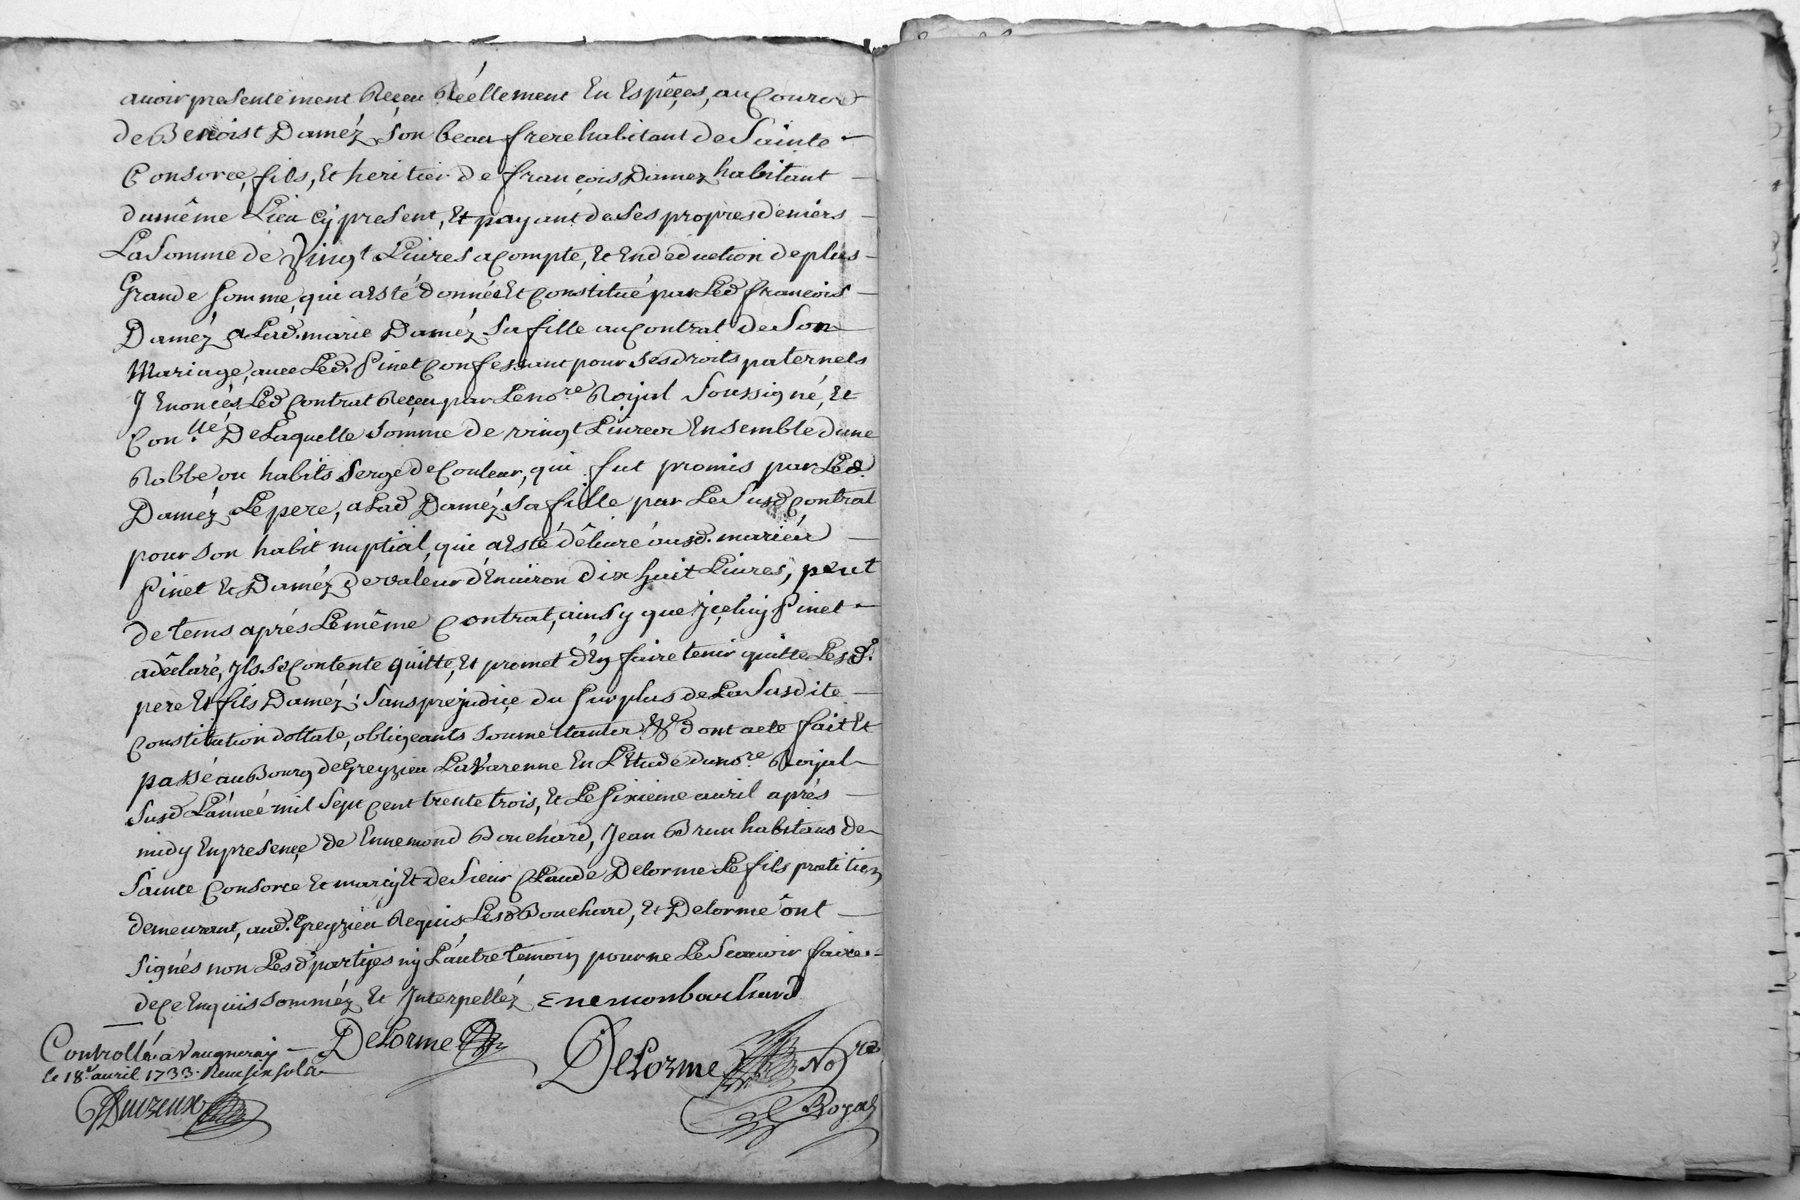 avoir presentement Receu Réellement En Espêçes, au Cours
de Benoist Daméz son beau frere habitant de Sainte
Consorce, fils, Et heritier de françois Damez habitant
du même Lieu Cy present, Et payant de ses propres deniers
La Somme de Vingt Livres a Compte, Et En déduction de plus
Grande somme, qui a Esté donnéé Et Constitué par Led françois
Daméz a Lad. marie Daméz Sa fille au Contrat de Son
Mariage, avec Led. Pinet Confessant pour ses droits paternels
Y Enoncés, Led Contrat Reçeu par Le no.re Royal Soussigné, Et
Con.lle De Laquelle Somme de vingt Livres Ensemble d'une
Robbe, ou habits Serge de Couleur, qui fut promis par Led
Daméz Le pere, a Lad Daméz Sa fille par Le Susd Contrat
pour son habit nuptial, qui a Esté délivré ausd. mariés
Pinet Et Daméz De valeur d'Environ dix huit Livres, peut
de tems aprés Le même Contrat, ainsy que Jçeluy Pinet
a déclaré, Contente quitte, Et promet d'En faire tenir quitte Lesd.
pere Et fils Daméz; Sans prejudiçe du surplus de La Susdite
Constitution dottale, obligeants soumettants &c dont acte fait Et
passé au Bourg de Greyzieu La Varenne En L'Etude du no.re Royal
Susd L'année mil Sept Cent trente trois, Et Le sixieme avril aprés
midy En presençe de Ennemond Bouchard, Jean Brun habitans de
Sainte Consorce Et marcy Et de Sieur Claude Delorme Le fils pratitien
demeurant, aud. Greyzieu Requis, Lesd Bouchard, Et Delorme ont
signés non Lesd. partyes ny L'autre temoin pour ne Le Scavoir faire
de Ce Enquis Sommés Et Interpelléz Enemonbouchard
DeLorme
DeLorme No.re
Royal
Controllé a Vaugneray
le 18.e avril 1733. Receu six sols